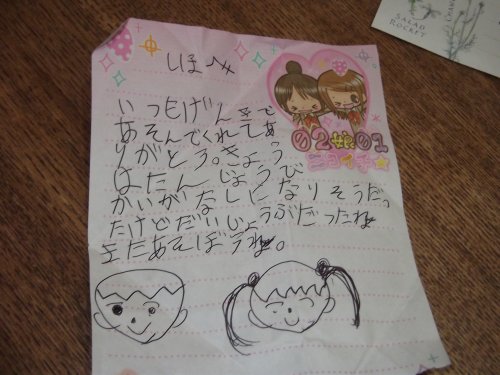 しほへ
いつもげんきで
あそんでくれてあ
りがとう。きょう
はたんじょうび
かいがなしになりそうだっ
たけどだいじょうぶだったね
またあそぼうね。
02娘01
ニコイチ☆
SALAD
ROCKET